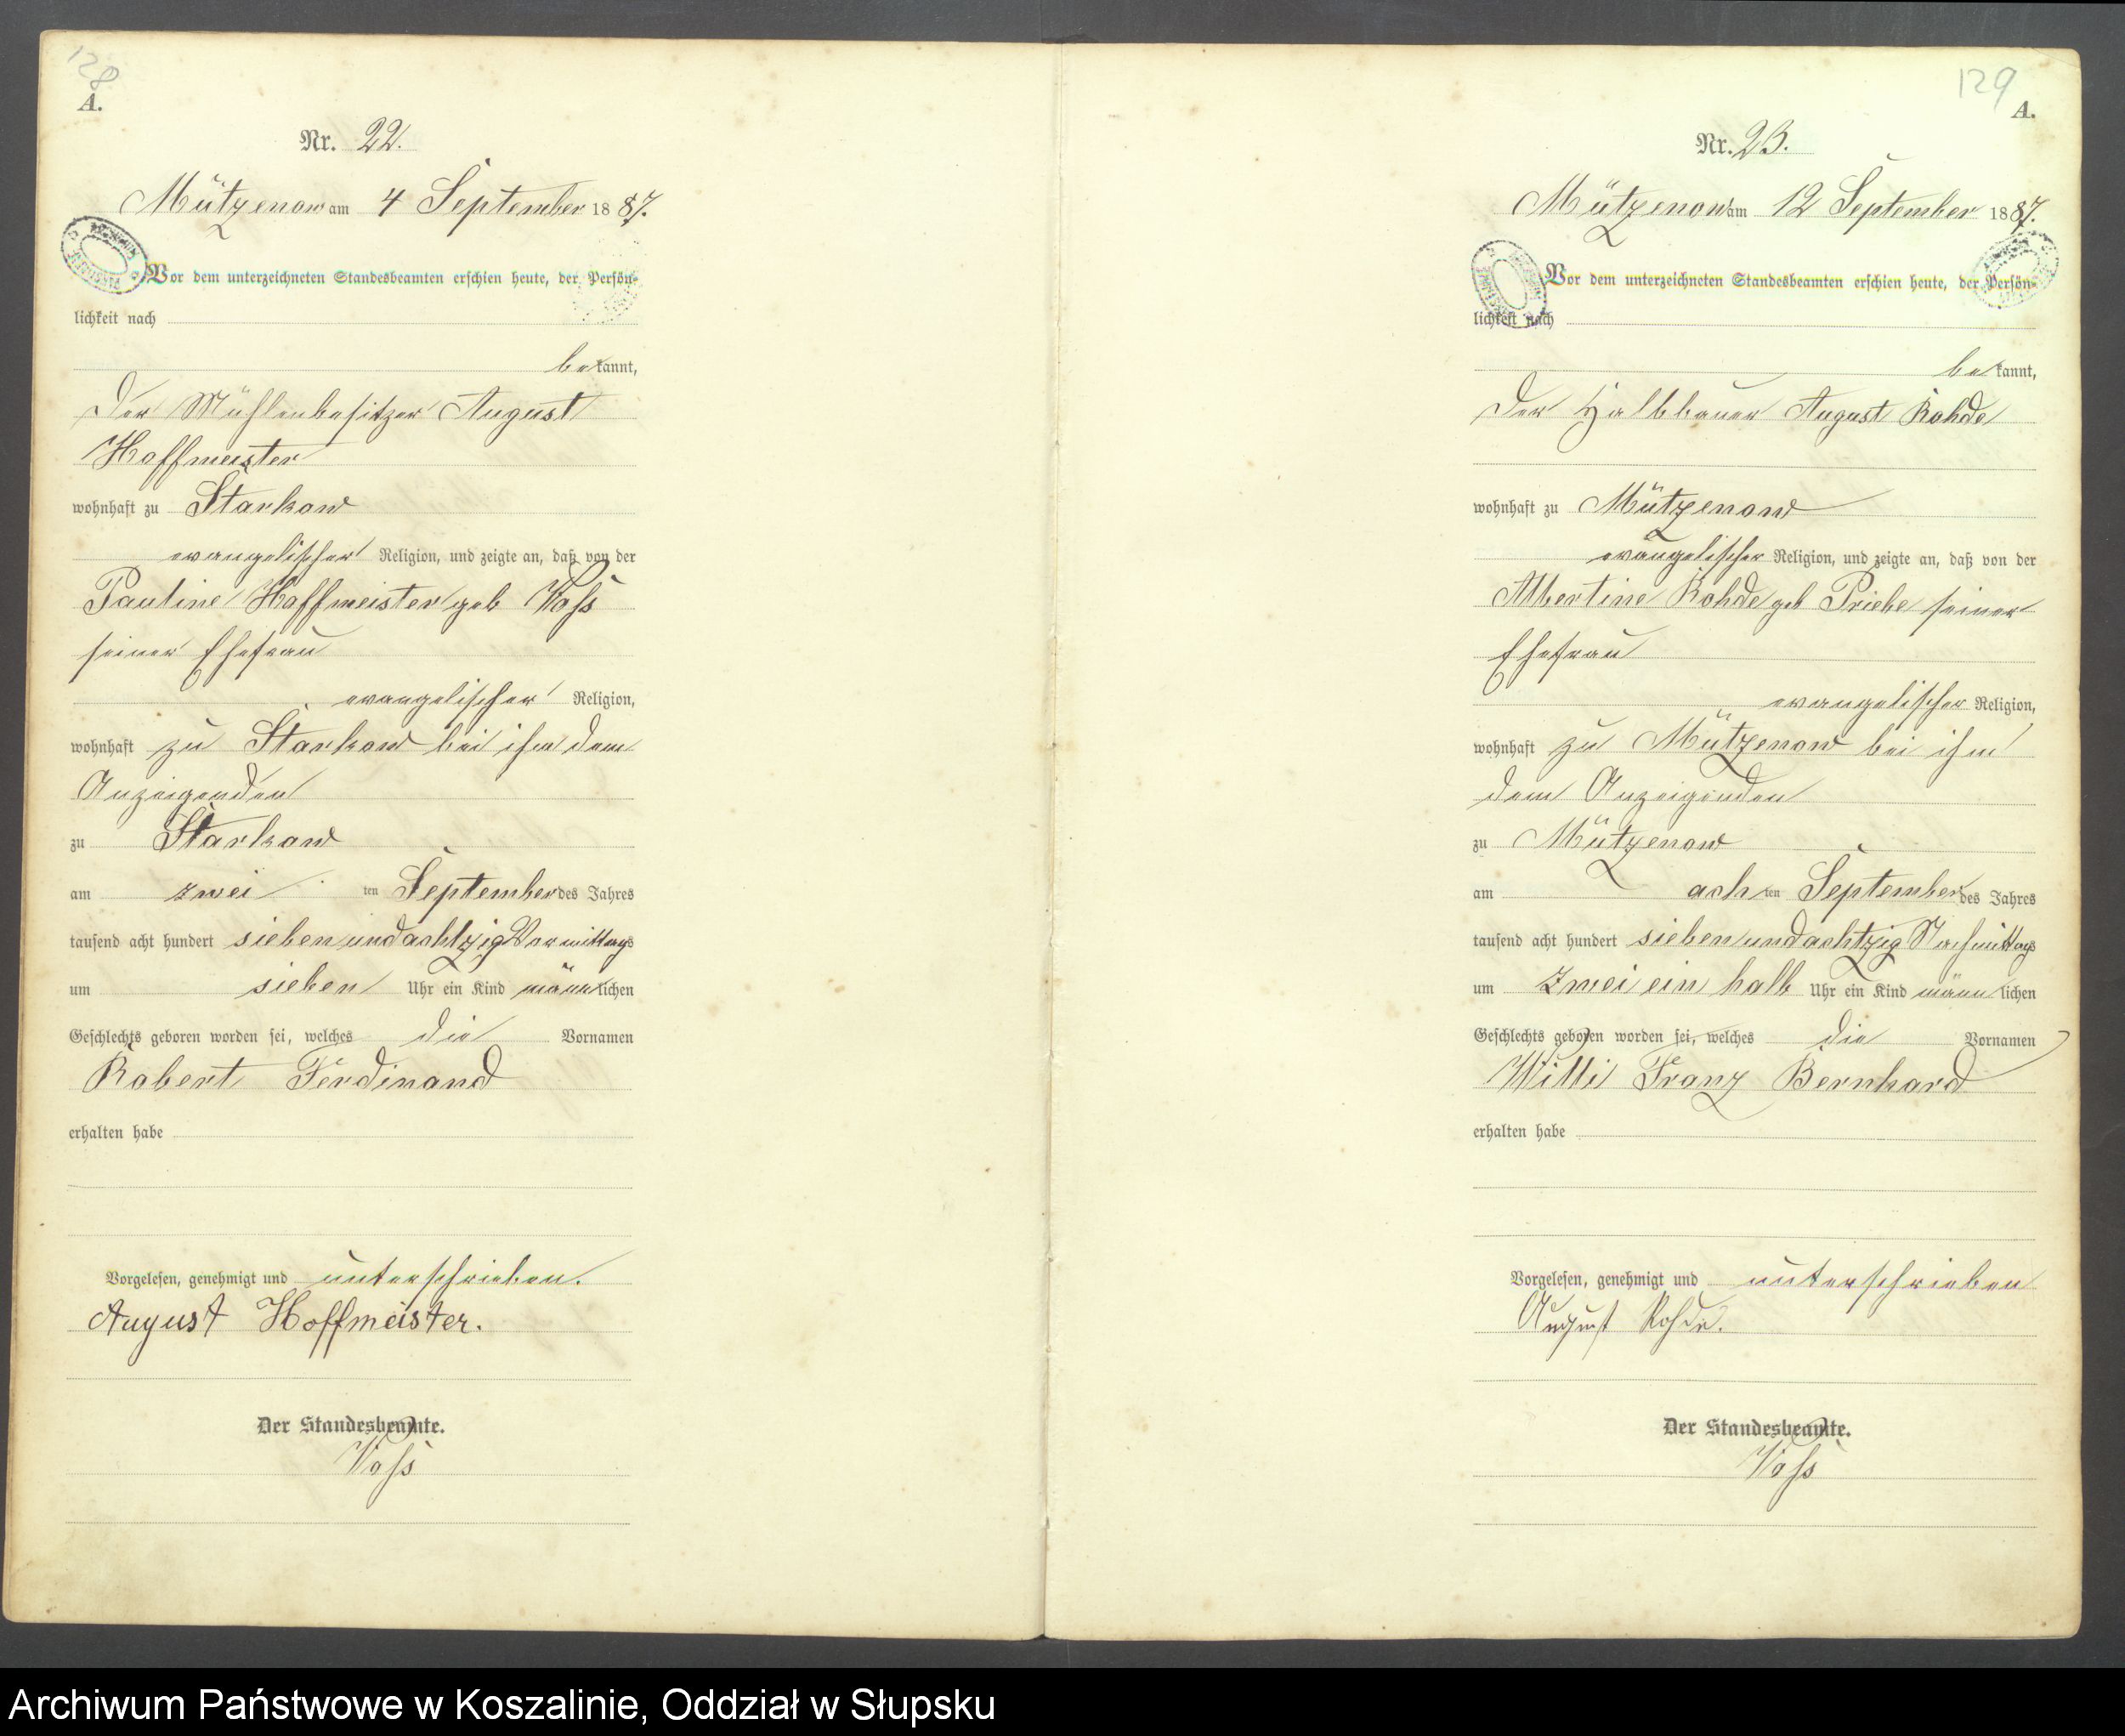 128
A.
Nr. 22.
Mützenow am 4 September 1887.
Vor dem unterzeichneten Standesbeamten erschien heute, der Persön-
lichkeit nach
bekannt,
der Mühlenbesitzer August
Hoffmeister
wohnhaft zu Starkow
evangelischer Religion, und zeigte an, daß von der
Pauline Hoffmeister geb Voss
seiner Ehefrau
evangelischer Religion,
wohnhaft zu Starkow bei ihm dem
Anzeigenden
zu Starkow
am zwei ten September des Jahres
tausend acht hundert siebenundachtzig Vormittags
um sieben Uhr ein Kind männlichen
Geschlechts geboren worden sei, welches die Vornamen
Robert Ferdinand
erhalten habe
Vorgelesen, genehmigt und unterschrieben.
August Hoffmeister.
Der Standesbeamte.
Voss
129
A.
Nr. 23.
Mützenow am 12 September 1887.
Vor dem unterzeichneten Standesbeamten erschien heute, der Persön-
lichkeit nach
bekannt,
der Halbbauer August Rohde
wohnhaft zu Mützenow
evangelischer Religion, und zeigte an, daß von der
Albertine Rohde geb Priebe seiner
Ehefrau
evangelischer Religion,
wohnhaft zu Mützenow bei ihm
dem Anzeigenden
zu Mützenow
am ach ten September des Jahres
tausend acht hundert siebenundachtzig Nachmittags
um zwei ein halb Uhr ein Kind männlichen
Geschlechts geboren worden sei, welches die Vornamen
Willi Franz Bernhard
erhalten habe
Vorgelesen, genehmigt und unterschrieben
August Rohde.
Der Standesbeamte.
Voss
Archiwum Państwowe w Koszalinie, Oddział w Słupsku